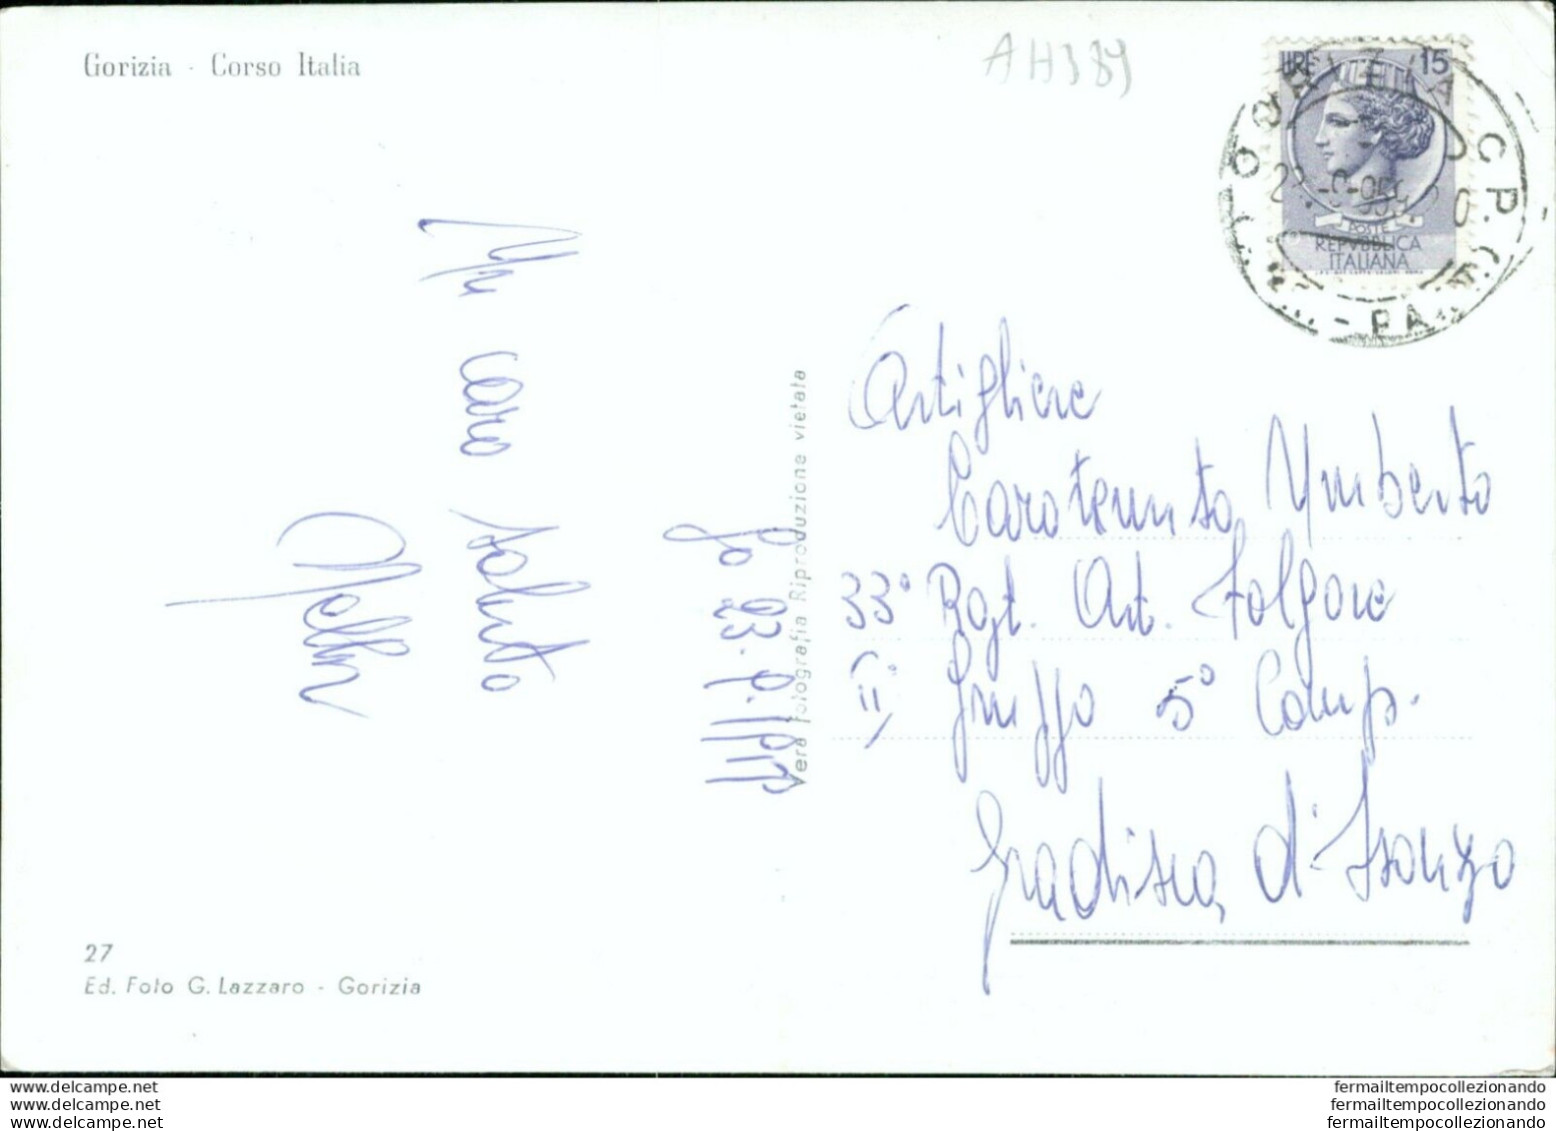 Gorizia - Corso Italia
AH389
LIRE 15
POSTE
REPVBBLICA
ITALIANA
GORIZIA C.P.
Un caro saluto
Go 23.9.1959
Vera fotografia Riproduzione vietata
Artigliere
Carotenuto Umberto
33° Rgt. Art. Folgore
II° Gruppo 5° Comp.
Gradisca d'Isonzo
27
Ed. Foto G. Lazzaro - Gorizia
www.delcampe.net
www.delcampe.net
www.delcampe.net
fermailtempocollezionando
fermailtempocollezionando
fermailtempocollezionando